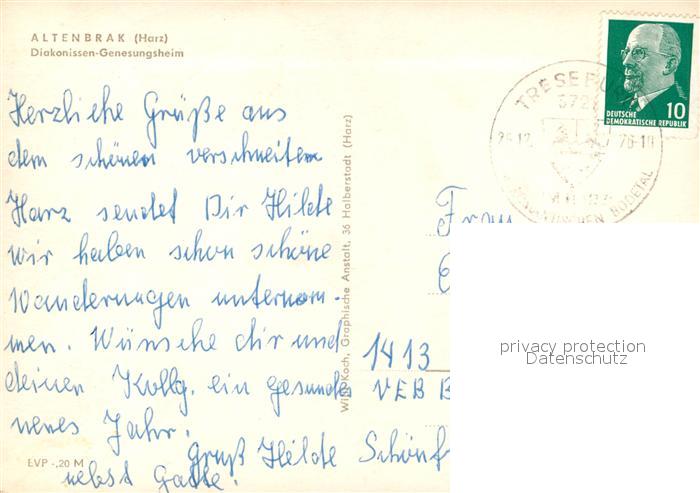 ALTENBRAK (Harz)
Diakonissen-Genesungsheim
Herzliche Grüße aus
dem schönen verschneiten
Harz sendet Dir Hilde
wir haben schon schöne
Wanderungen unternom-
men. Wünsche dir und
deinen Kollg. ein gesundes
neues Jahr.
Gruß Hilde
nebst Gatte.
EVP -,20 M
Will Koch, Graphische Anstalt, 36 Halberstadt (Harz)
TRESEBU
372
BODETAL
10
DEUTSCHE
DEMOKRATISCHE REPUBLIK
Frau
1413
VEB B
privacy protection
Datenschutz